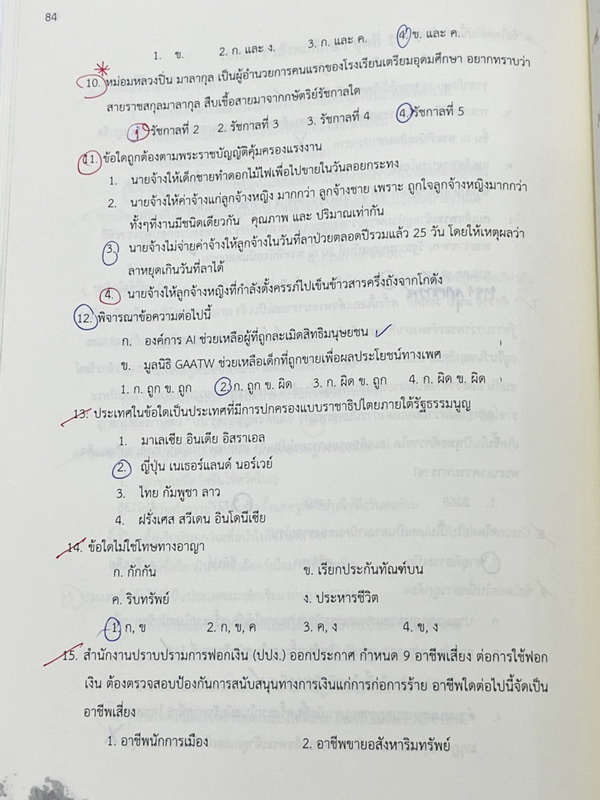 84
1. ข. 2. ก. และ ง. 3. ก. และ ค. 4. ข. และ ค.
10. หม่อมหลวงปิ่น มาลากุล เป็นผู้อำนวยการคนแรกของโรงเรียนเตรียมอุดมศึกษา อยากทราบว่า
สายราชสกุลมาลากุล สืบเชื้อสายมาจากกษัตริย์รัชกาลใด
1. รัชกาลที่ 2 2. รัชกาลที่ 3 3. รัชกาลที่ 4 4. รัชกาลที่ 5
11. ข้อใดถูกต้องตามพระราชบัญญัติคุ้มครองแรงงาน
1. นายจ้างให้เด็กชายทำดอกไม้ไฟเพื่อไปขายในวันลอยกระทง
2. นายจ้างให้ค่าจ้างแก่ลูกจ้างหญิง มากกว่า ลูกจ้างชาย เพราะ ถูกใจลูกจ้างหญิงมากกว่า
ทั้งๆที่งานมีชนิดเดียวกัน คุณภาพ และ ปริมาณเท่ากัน
3. นายจ้างไม่จ่ายค่าจ้างให้ลูกจ้างในวันที่ลาป่วยตลอดปีรวมแล้ว 25 วัน โดยให้เหตุผลว่า
ลาหยุดเกินวันที่ลาได้
4. นายจ้างให้ลูกจ้างหญิงที่กำลังตั้งครรภ์ไปเข็นข้าวสารครึ่งถังจากโกดัง
12. พิจารณาข้อความต่อไปนี้
ก. องค์การ AI ช่วยเหลือผู้ที่ถูกละเมิดสิทธิมนุษยชน
ข. มูลนิธิ GAATW ช่วยเหลือเด็กที่ถูกขายเพื่อผลประโยชน์ทางเพศ
1. ก. ถูก ข. ถูก 2. ก. ถูก ข. ผิด 3. ก. ผิด ข. ถูก 4. ก. ผิด ข. ผิด
13. ประเทศในข้อใดเป็นประเทศที่มีการปกครองแบบราชาธิปไตยภายใต้รัฐธรรมนูญ
1. มาเลเซีย อินเดีย อิสราเอล
2. ญี่ปุ่น เนเธอร์แลนด์ นอร์เวย์
3. ไทย กัมพูชา ลาว
4. ฝรั่งเศส สวีเดน อินโดนีเซีย
14. ข้อใดไม่ใช่โทษทางอาญา
ก. กักกัน ข. เรียกประกันทัณฑ์บน
ค. ริบทรัพย์ ง. ประหารชีวิต
1. ก, ข 2. ก, ข, ค 3. ค, ง 4. ข, ง
15. สำนักงานปราบปรามการฟอกเงิน (ปปง.) ออกประกาศ กำหนด 9 อาชีพเสี่ยง ต่อการใช้ฟอก
เงิน ต้องตรวจสอบป้องกันการสนับสนุนทางการเงินแก่การก่อการร้าย อาชีพใดต่อไปนี้จัดเป็น
อาชีพเสี่ยง
1. อาชีพนักการเมือง 2. อาชีพขายอสังหาริมทรัพย์